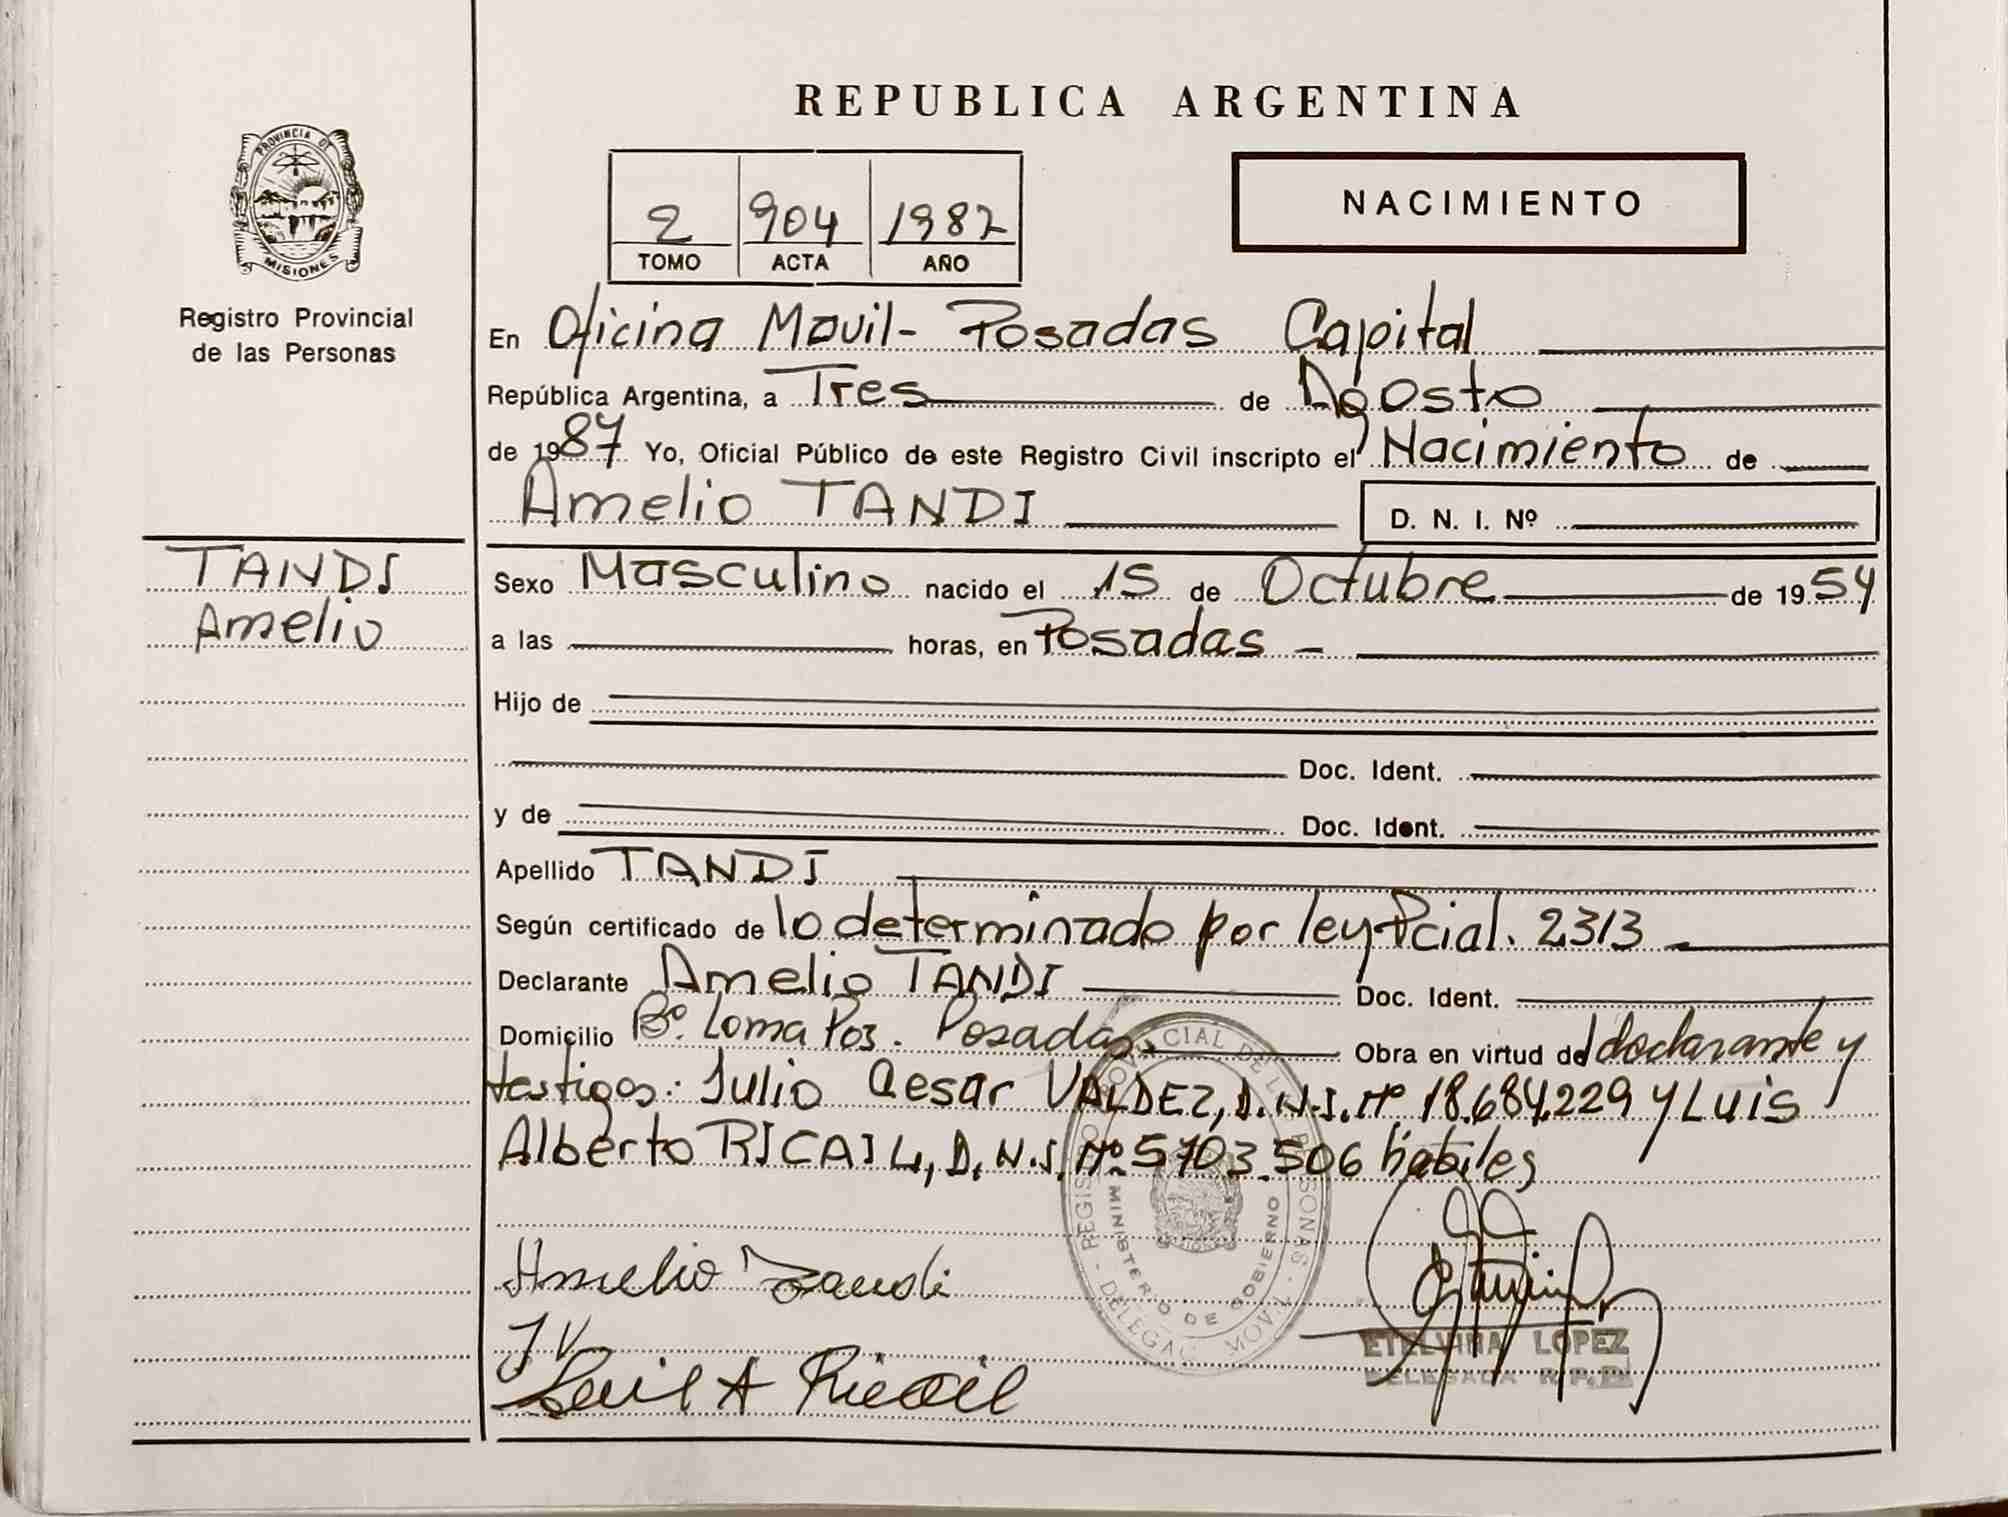 REPUBLICA ARGENTINA
PROVINCIA DE
MISIONES
Registro Provincial
de las Personas
2 904 1987
TOMO ACTA AÑO
NACIMIENTO
En Oficina Movil- Posadas Capital
República Argentina, a Tres de Agosto
de 1987 Yo, Oficial Público de este Registro Civil inscripto el Nacimiento de
Amelio TANDI D. N. I. Nº
TANDI
Amelio
Sexo Masculino nacido el 15 de Octubre de 1954
a las horas, en Posadas -
Hijo de
Doc. Ident.
y de Doc. Ident.
Apellido TANDI
Según certificado de lo determinado por ley Pcial. 2313
Declarante Amelio TANDI Doc. Ident.
Domicilio Bº. Loma Pos. Posadas. Obra en virtud del declarante y
testigos: Julio Cesar VALDEZ, D.N.I. Nº 18.684.229 y Luis
Alberto RICAIL, D.N.I. Nº 5703.506 hábiles
REGISTRO PROVINCIAL DE LAS PERSONAS - DELEGAC. MOVIL -
MINISTERIO DE GOBIERNO
Amelio Tandi
J V
Luis A Ricail
ETELVINA LOPEZ
DELEGADA R.P.P.